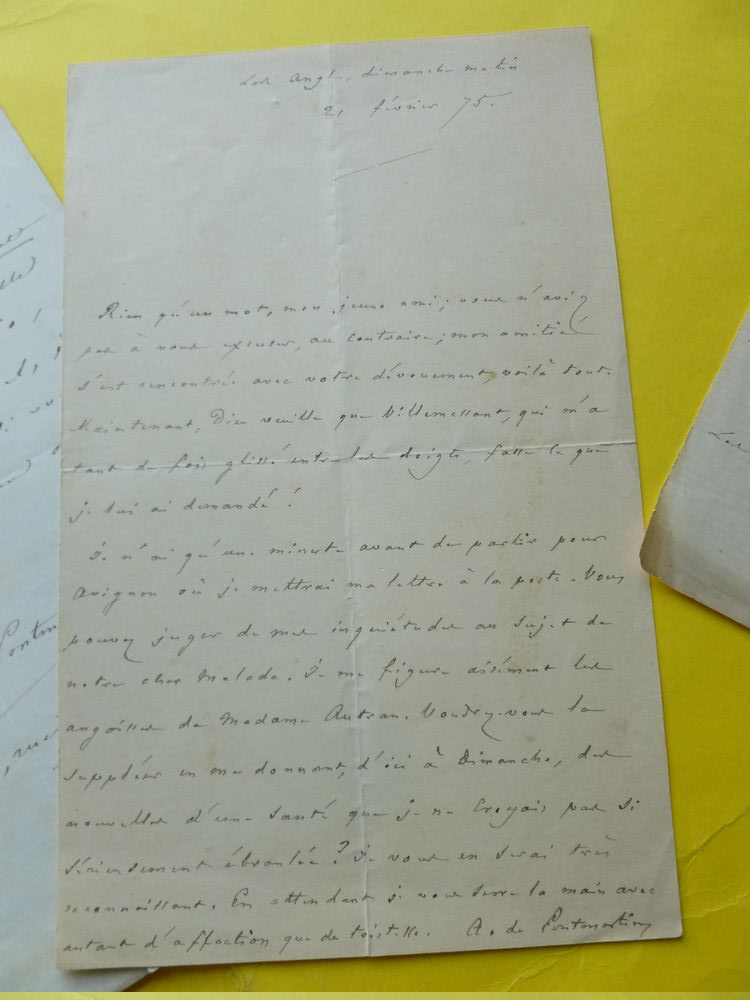 Les Angles, dimanche matin
21 février 75.
Rien qu'un mot, mon jeune ami; vous n'aviez
pas à vous excuser, au contraire; mon amitié
s'est rencontrée avec votre dévouement, voilà tout.
Maintenant, Dieu veuille que Villemessant, qui m'a
tant de fois glissé entre les doigts, fasse ce que
je lui ai demandé!
Je n'ai qu'une minute avant de partir pour
Avignon où je mettrai ma lettre à la poste. Vous
pouvez juger de mes inquiétudes au sujet de
notre cher Malade. Je me figure aisément les
angoisses de Madame Autran. Voudrez-vous la
suppléer en me donnant, d'ici à Dimanche, des
nouvelles d'une santé que je ne croyais pas si
sérieusement ébranlée? Je vous en serai très
reconnaissant. En attendant je vous serre la main avec
autant d'affection que de tristesse. A. de Pontmartin